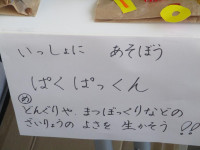 いっしょに あそぼう
ぱくぱっくん
め
どんぐりや まつぼっくりなどの
ざいりょうの よさを 生かそう!!